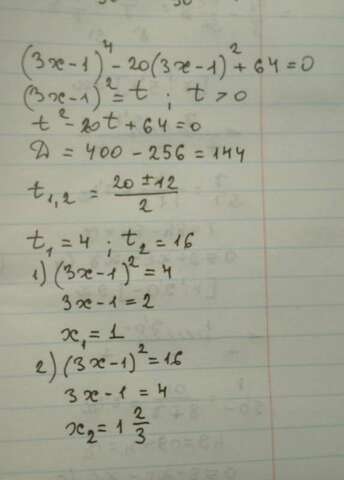 (3x-1)⁴-20(3x-1)²+64=0
(3x-1)²=t ; t>0
t²-20t+64=0
D=400-256=144
t₁,₂ = (20±12)/2
t₁=4 ; t₂=16
1) (3x-1)²=4
3x-1=2
x₁=1
2) (3x-1)²=16
3x-1=4
x₂=1 2/3